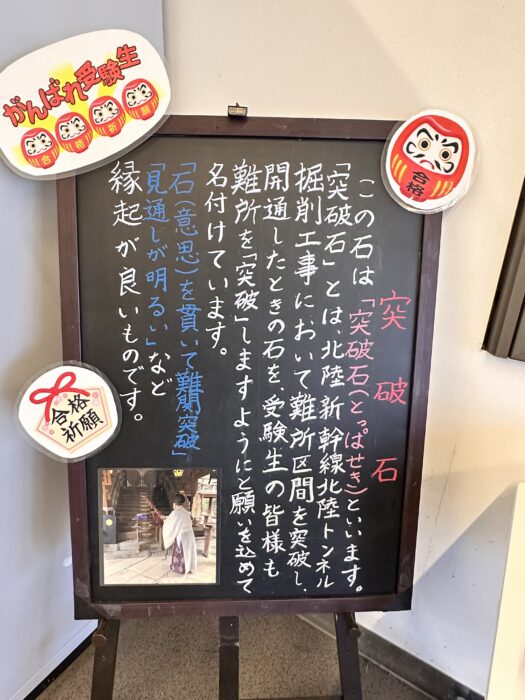 がんばれ受験生
合
格
祈
願
合格
突破石
この石は「突破石(とっぱせき)といいます。
「突破石」とは、北陸新幹線北陸トンネル
掘削工事において難所区間を突破し、
開通したときの石を、受験生の皆様も
難所を「突破」しますようにと願いを込めて
名付けています。
「石(意思)を貫いて難関突破」
「見通しが明るい」など
縁起が良いものです。
合格
祈願